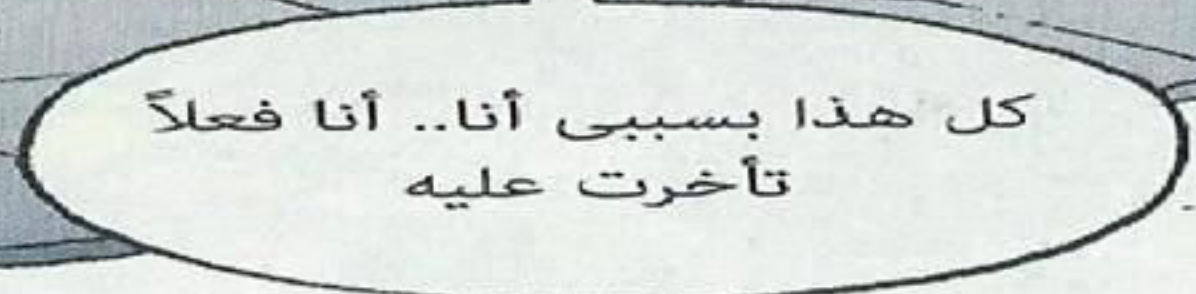 كل هذا بسببى أنا.. أنا فعلاً
تأخرت عليه